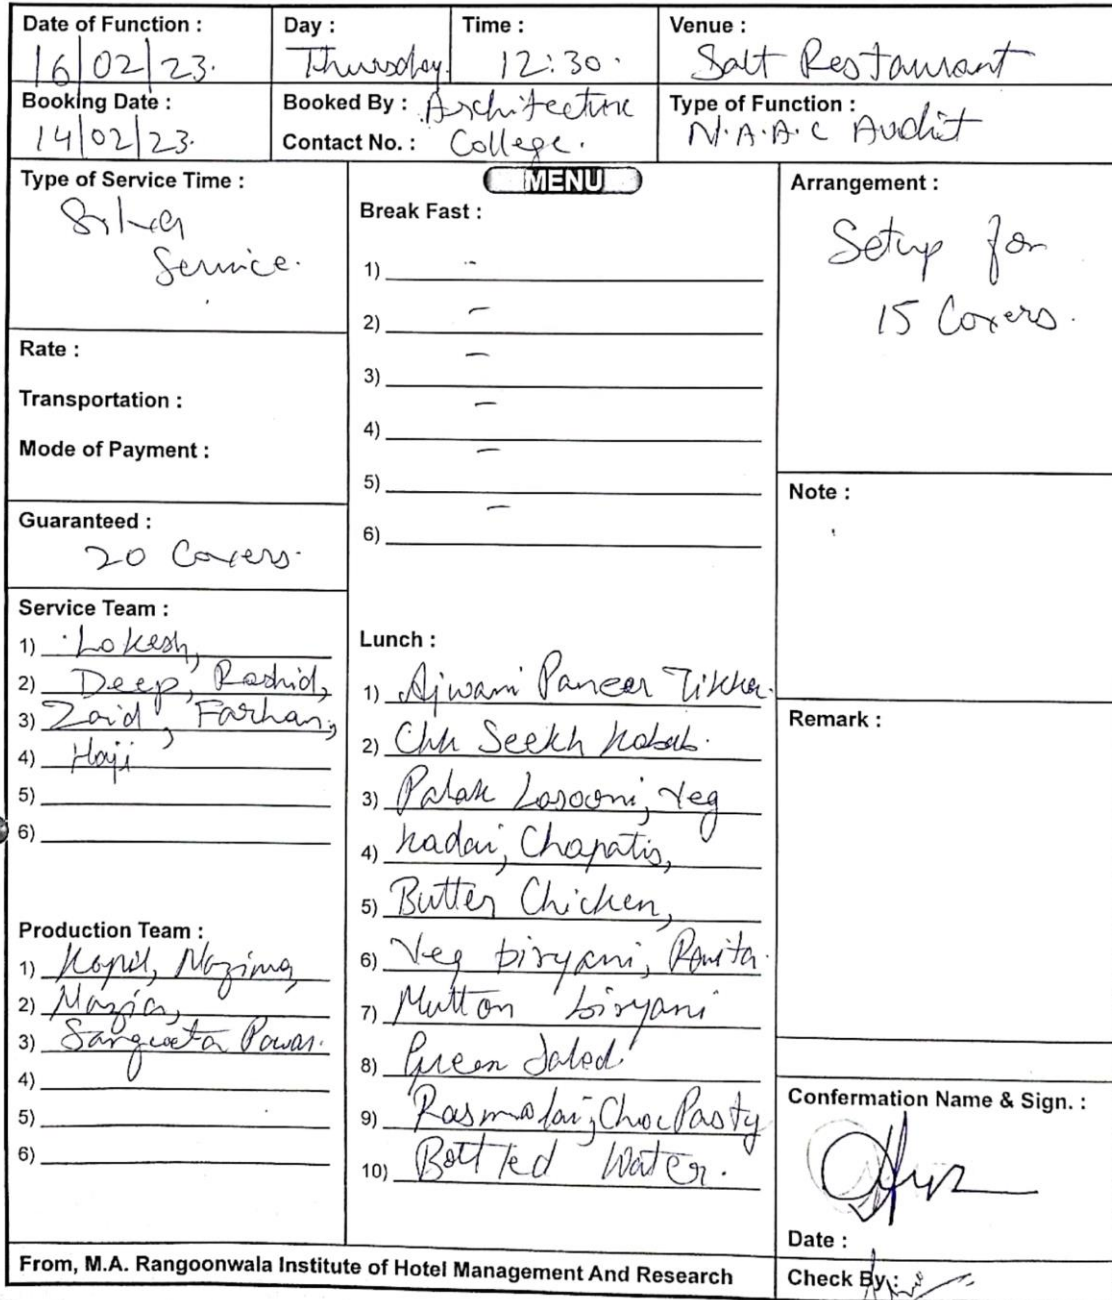 Date of Function :
16/02/23.
Day :
Thursday.
Time :
12:30.
Venue :
Salt Restaurant
Booking Date :
14/02/23.
Booked By : Architecture
Contact No. : College.
Type of Function :
N.A.A.C Audit
Type of Service Time :
Silver
Service.
Rate :
Transportation :
Mode of Payment :
Guaranteed :
20 Covers.
Service Team :
1) Lokesh,
2) Deep, Rashid,
3) Zaid, Farhan,
4) Haji
5)
6)
Production Team :
1) Kapil, Nazima,
2) Nazia,
3) Sangeeta Pawar.
4)
5)
6)
MENU
Break Fast :
1) -
2) -
3) -
4) -
5) -
6) -
Lunch :
1) Ajwani Paneer Tikka.
2) Chk Seekh Kabab.
3) Palak Lasooni, Veg
4) Kadai, Chapatis,
5) Butter Chicken,
6) Veg biryani, Raita.
7) Mutton biryani
8) Green Salad
9) Rasmalai, Choc Pasty
10) Bottled Water.
Arrangement :
Setup for
15 Covers.
Note :
Remark :
Confermation Name & Sign. :
Date :
Check By :
From, M.A. Rangoonwala Institute of Hotel Management And Research